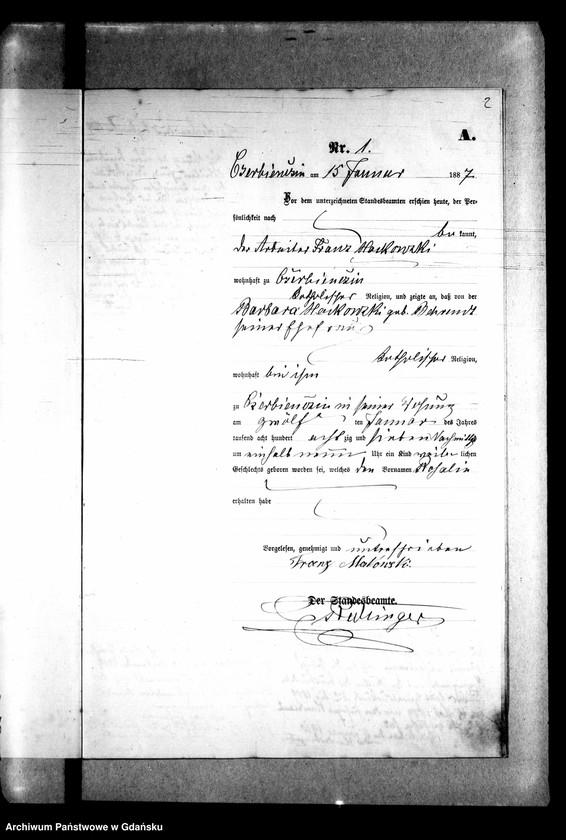 2
A.
Nr. 1.
Czerbienczin am 15 Januar 1887.
Vor dem unterzeichneten Standesbeamten erschien heute, der Per-
sönlichkeit nach
be kannt,
der Arbeiter Franz Mackowski
wohnhaft zu Czerbienczin
katholischer Religion, und zeigte an, daß von der
Barbara Mackowski geb. Behrendt
seiner Ehefrau
katholischer Religion,
wohnhaft bei ihm
zu Czerbienczin in seiner Wohung
am zwölf ten Januar des Jahres
tausend acht hundert acht zig und sieben Nachmittag
um einhalb neun Uhr ein Kind weib lichen
Geschlechts geboren worden sei, welches den Vornamen Rosalie
erhalten habe
Vorgelesen, genehmigt und unterschrieben
Franz
Der Standesbeamte.
Archiwum Państwowe w Gdańsku